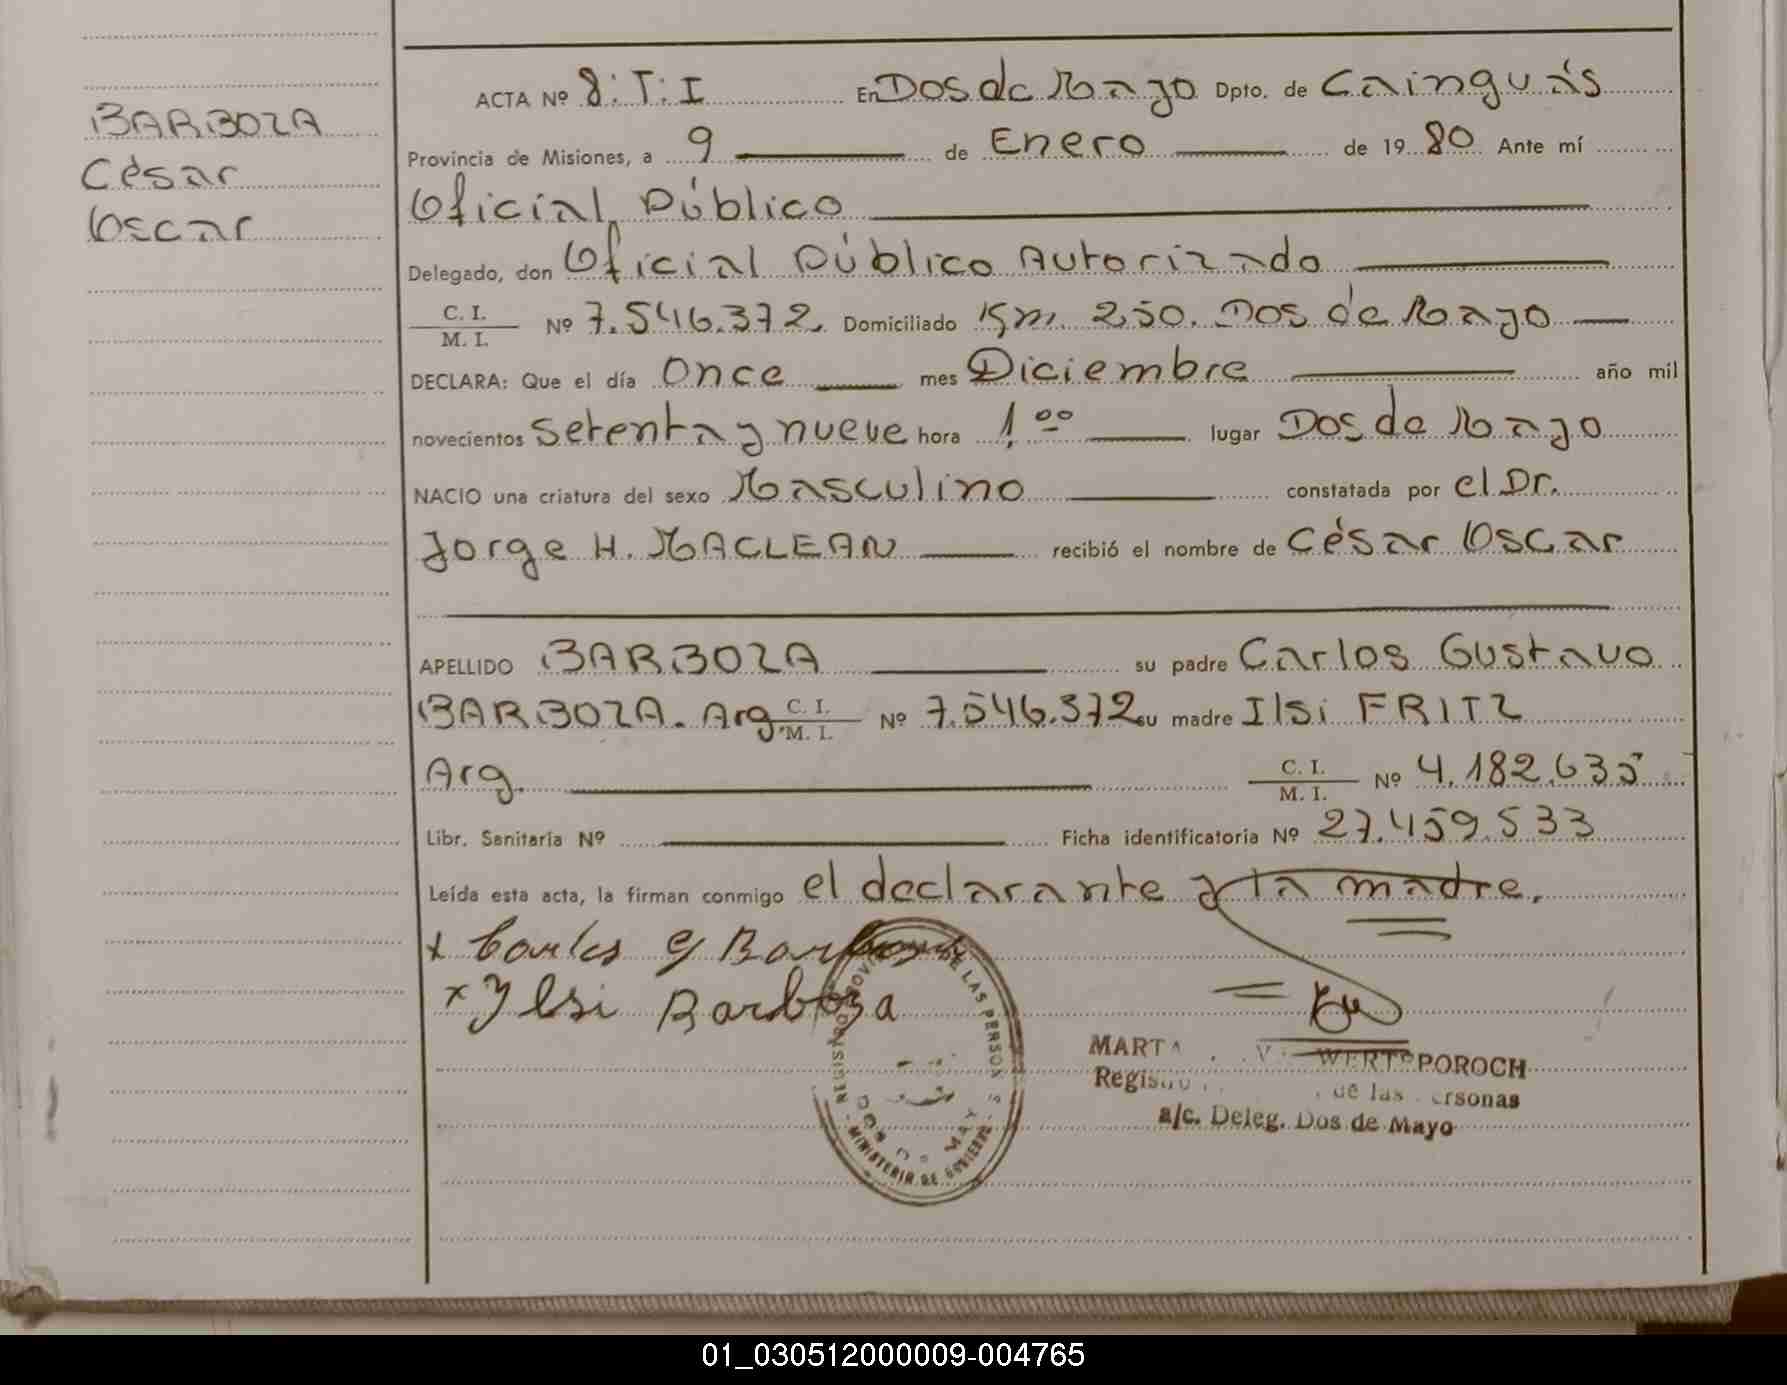 BARBOZA
César
Oscar
ACTA Nº 8:T:I En Dos de Mayo Dpto. de Cainguás
Provincia de Misiones, a 9 de Enero de 1980 Ante mí
Oficial Público
Delegado, don Oficial Público Autorizado
C. I.
M. I. Nº 7.546.372 Domiciliado Km. 250. Dos de Mayo
DECLARA: Que el día Once mes Diciembre año mil
novecientos setenta y nueve hora 1,00 lugar Dos de Mayo
NACIO una criatura del sexo Masculino constatada por el Dr.
Jorge H. MACLEAN recibió el nombre de César Oscar
APELLIDO BARBOZA su padre Carlos Gustavo
BARBOZA. Arg. C. I. M. I. Nº 7.546.372 su madre Ilsi FRITZ
Arg. C. I. M. I. Nº 4.182.635
Libr. Sanitaria Nº Ficha identificatoria Nº 27.459.533
Leída esta acta, la firman conmigo el declarante y la madre.
x Carlos G Barboza
x Ylsi Barboza
LAS PERSONAS
MINISTERIO DE GOBIERNO
MARTA WERT POROCH
de las Personas
a/c. Deleg. Dos de Mayo
01_030512000009-004765